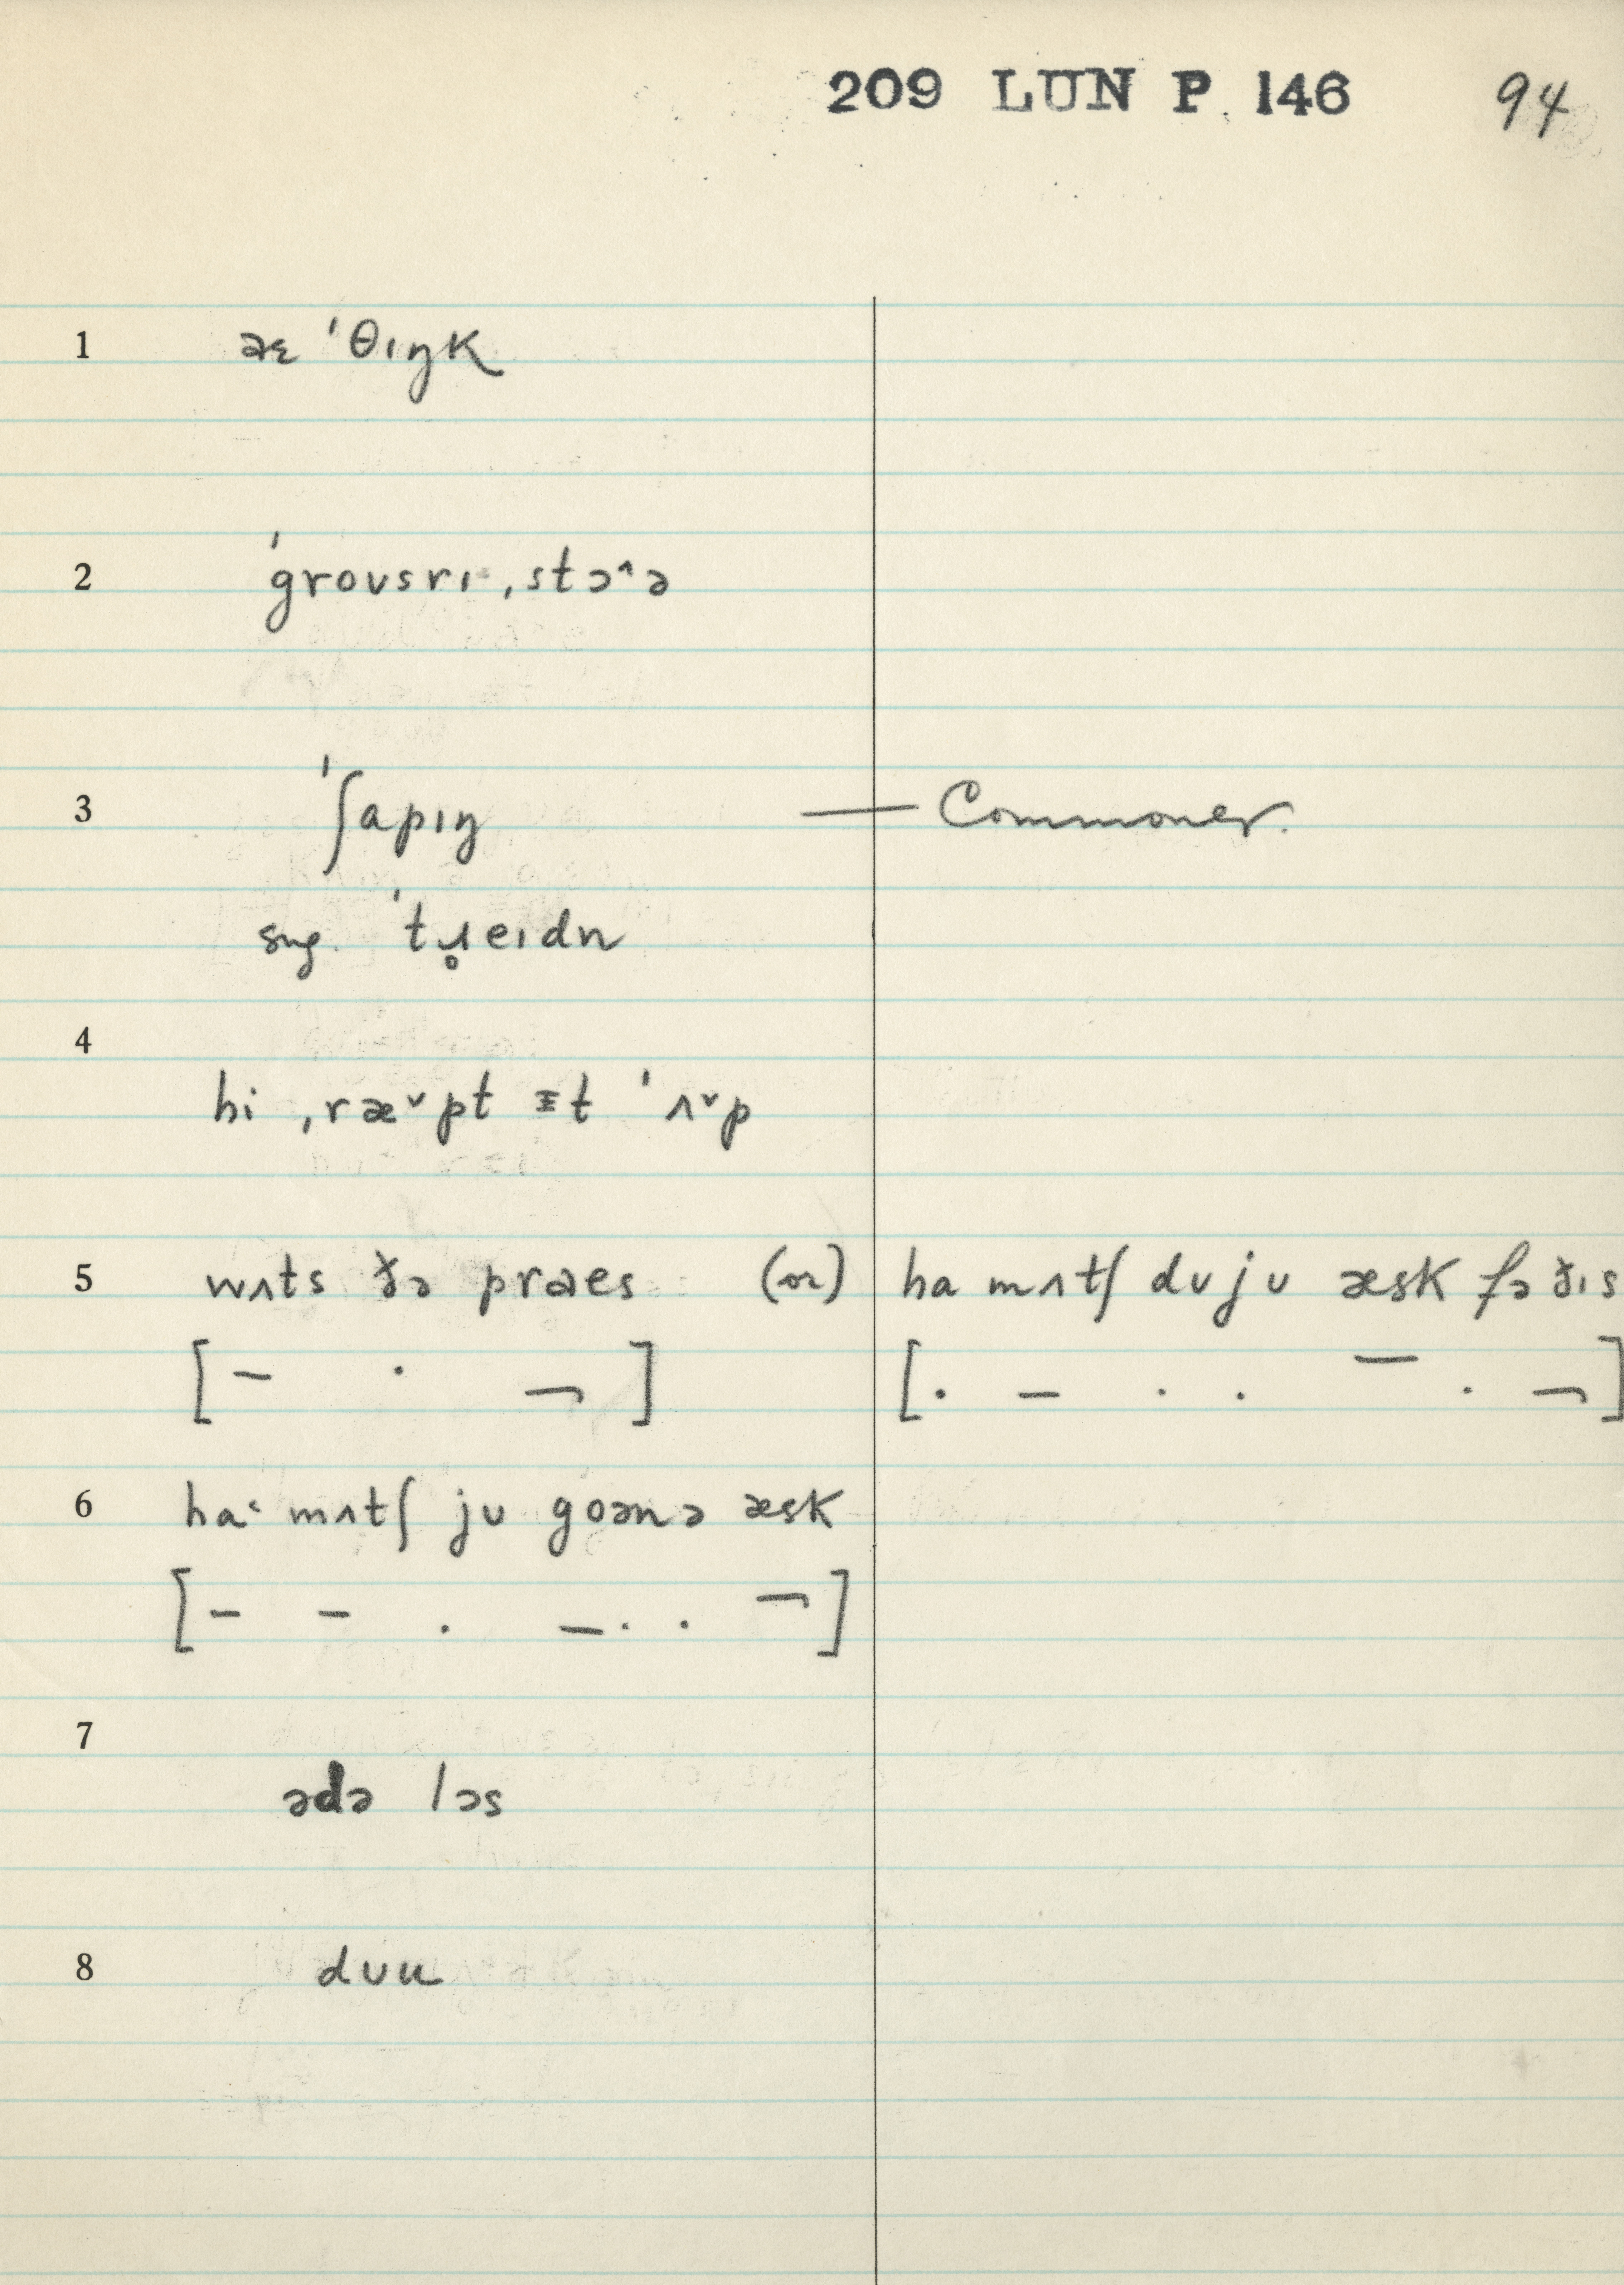 209 LUN P. 146 94
1 aɛ ˈθɪŋk
2 ˈgroʊsrɪ ˌstɔ^ə
3 ˈʃapɪŋ — Commoner.
sug. ˈtɹ̥eɪdn
4
hi ˌræˇpt ᵻt ˈʌˇp
5 wʌts ðə praes (or) ha mʌtʃ dʊjʊ æsk fə ðɪs
[– · ¬] [· – · · – · ¬]
6 ha˂ mʌtʃ jʊ goənə æsk
[– – · – · · ¬]
7
ədə lɔs
8 dʊu